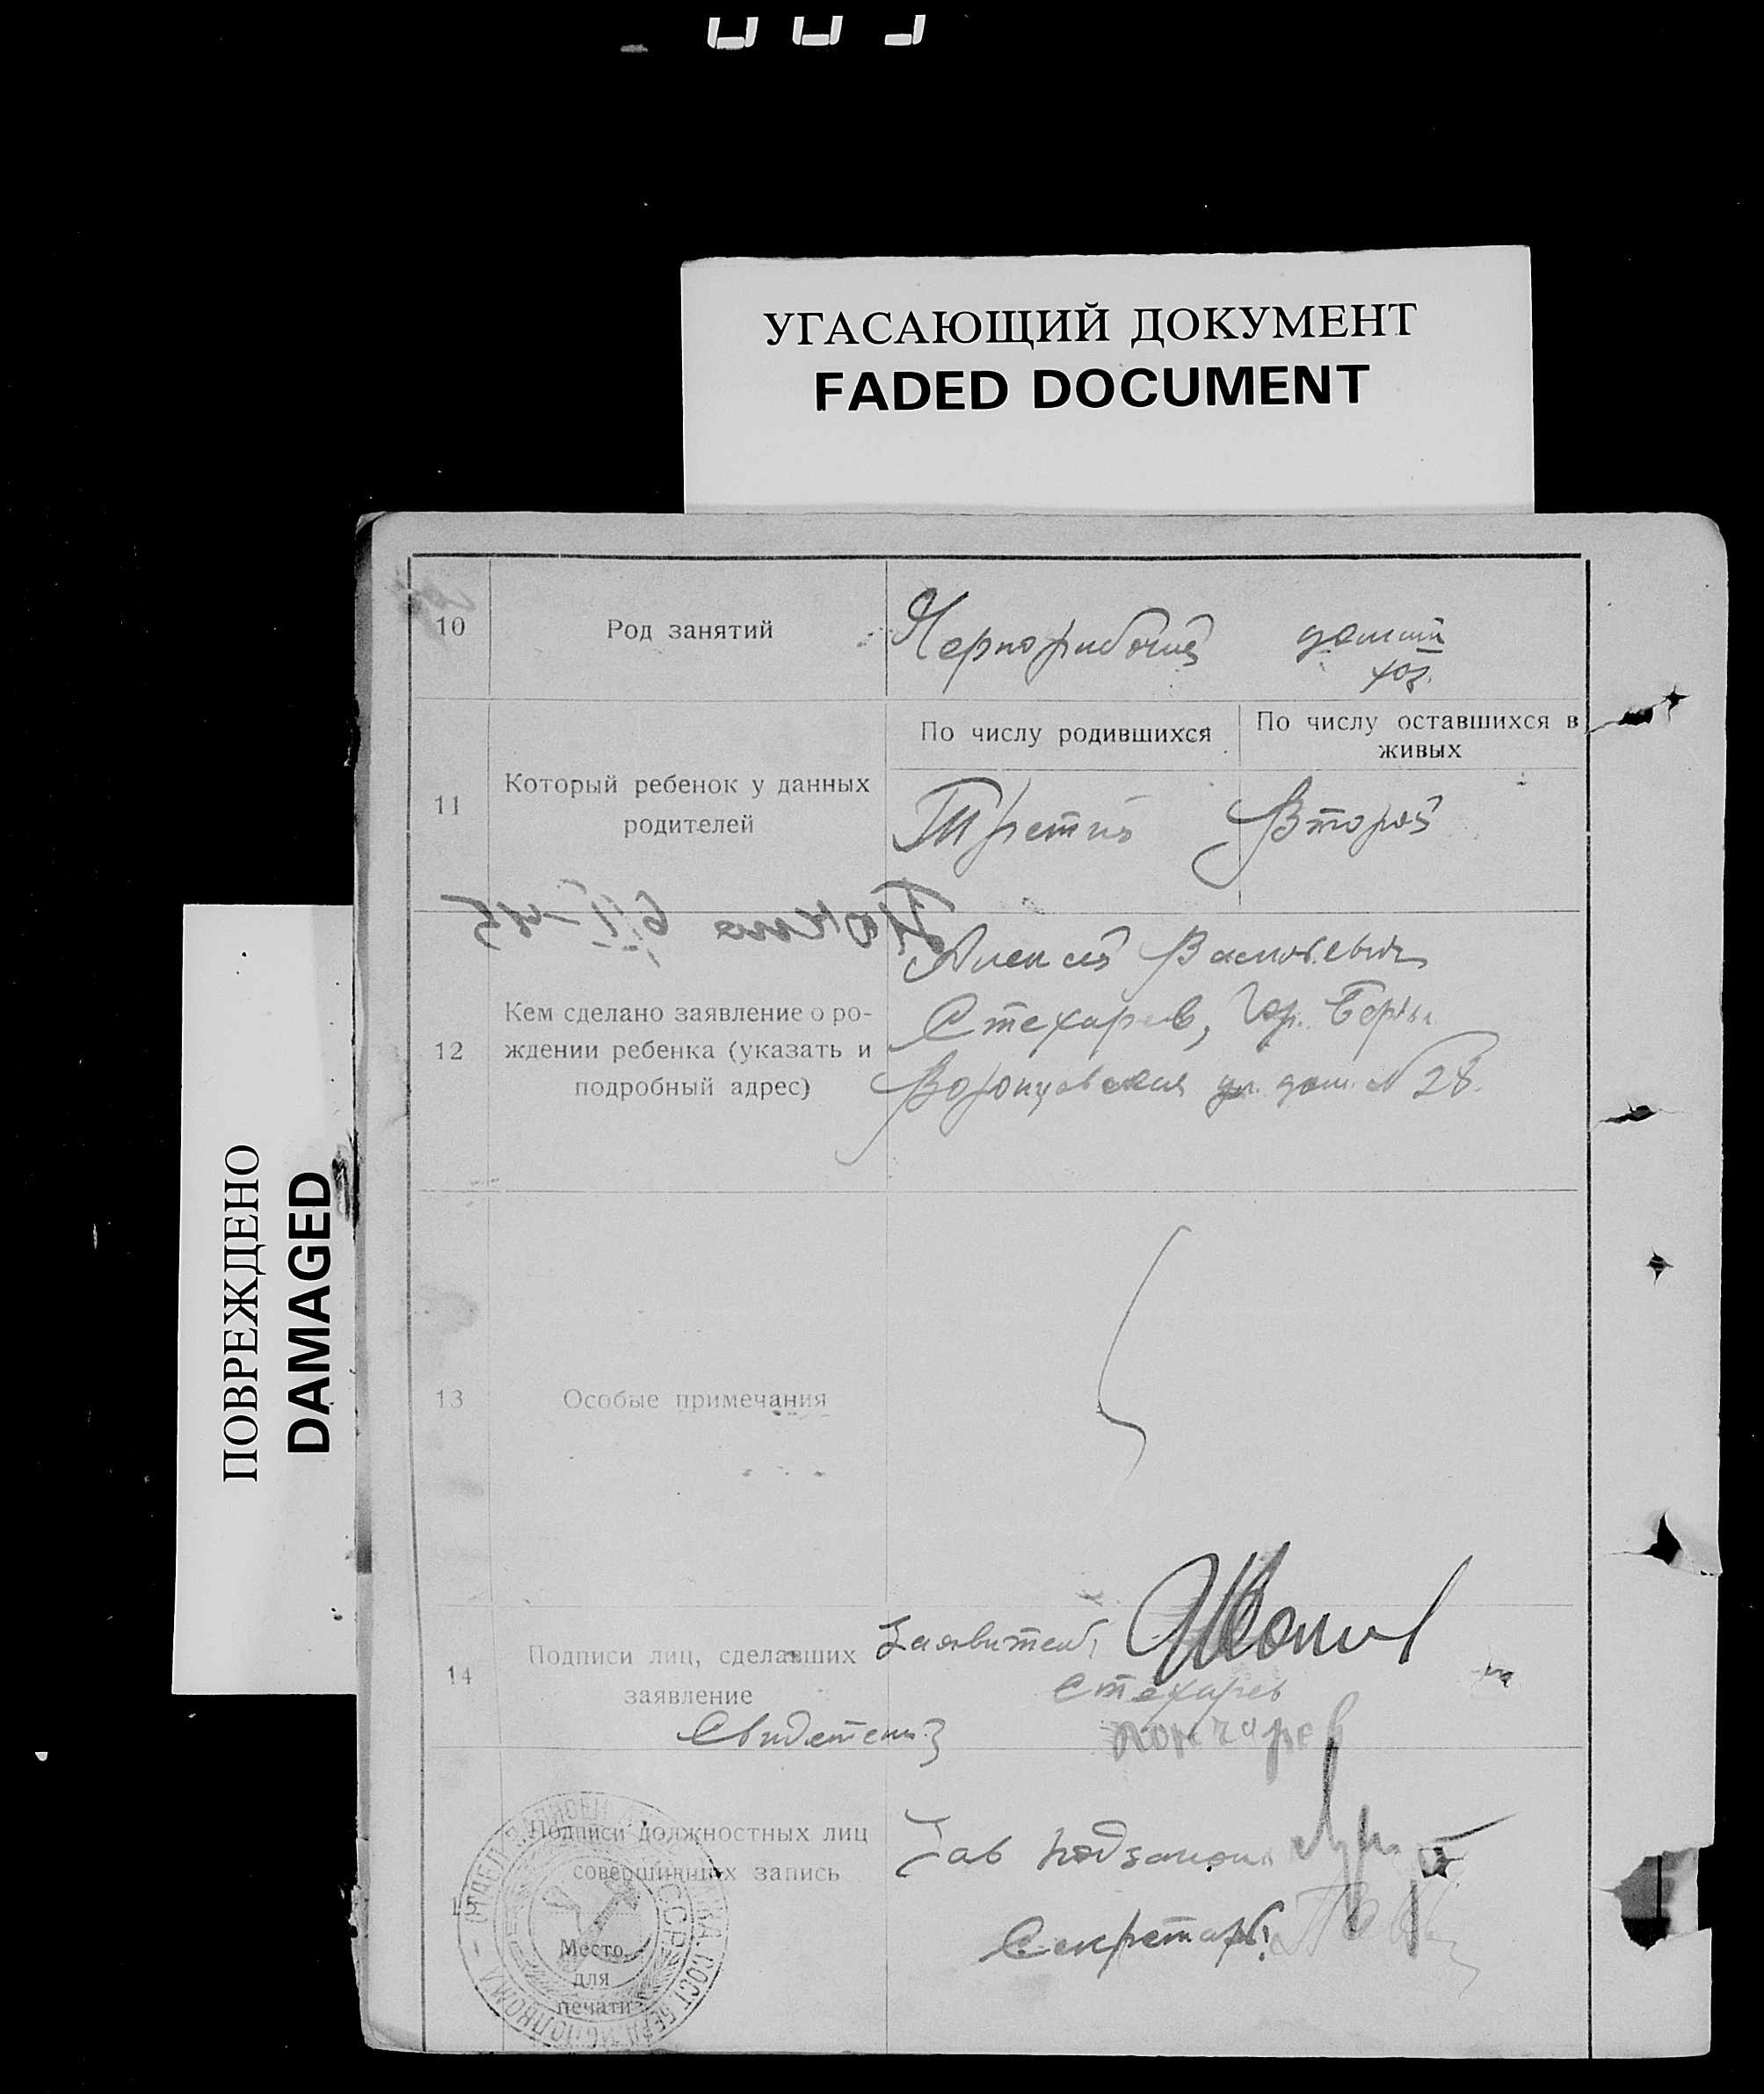 УГАСАЮЩИЙ ДОКУМЕНТ
FADED DOCUMENT
ПОВРЕЖДЕНО
DAMAGED
10 Род занятий Чернорабочий домаш хоз.
По числу родившихся По числу оставшихся в живых
11 Который ребенок у данных родителей Третий Второй
12 Кем сделано заявление о ро-
ждении ребенка (указать и
подробный адрес)
Алексей Васильевич
Стехарев, Гор.
Воронцовская ул. дом. № 28.
13 Особые примечания
14 Подписи лиц, сделавших
заявление
Заявитель
Стехарев
Свидетели
Подписи должностных лиц
совершивших запись
Зав
Секретарь
Место
для
печати